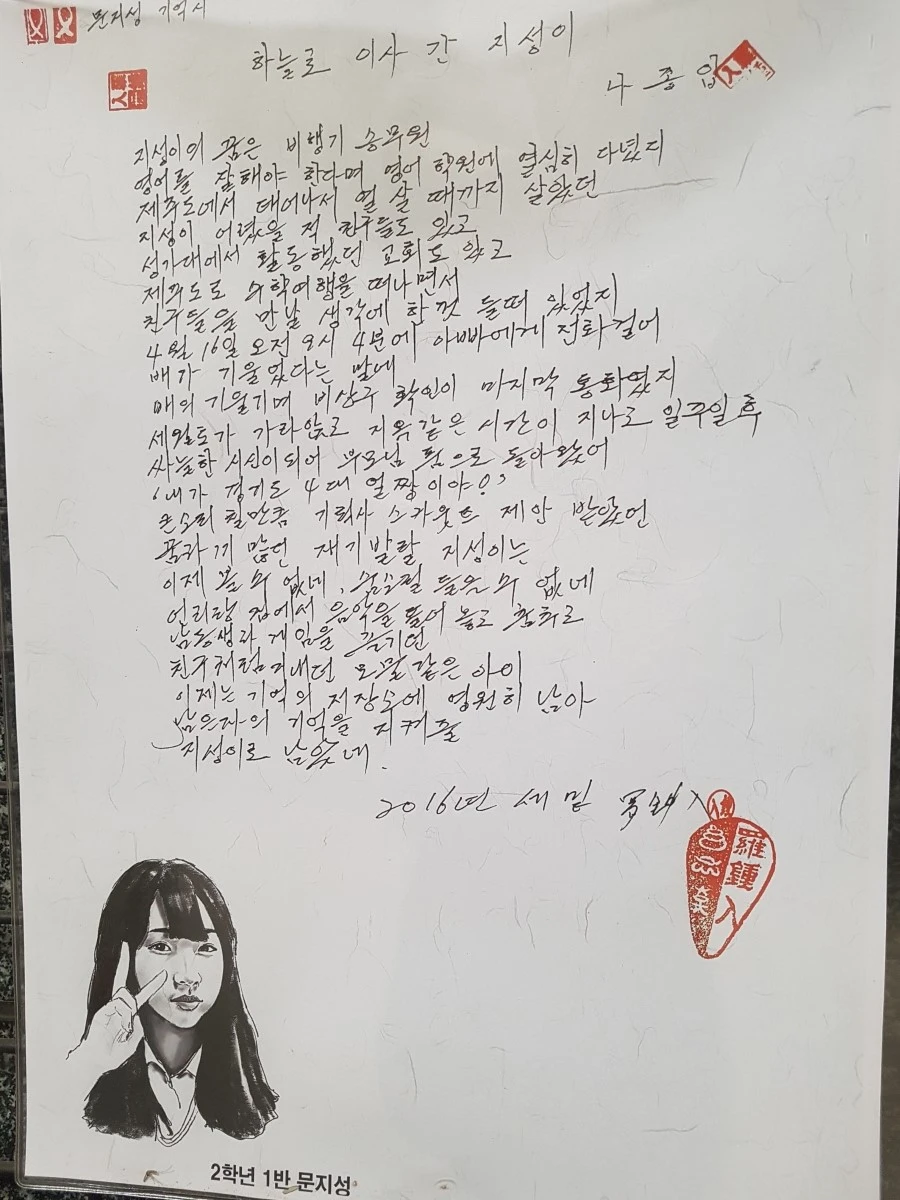 문지성 기억시
하늘로 이사 간 지성이
나종입
지성이의 꿈은 비행기 승무원
영어를 잘해야 한다며 영어 학원에 열심히 다녔지
제주도에서 태어나서 열 살 때까지 살았던
지성이 어렸을 적 친구들도 있고
성가대에서 활동했던 교회도 있고
제주도로 수학여행을 떠나면서
친구들을 만날 생각에 한껏 들떠 있었지
4월 16일 오전 9시 4분에 아빠에게 전화 걸어
배가 기울었다는 말에
배의 기울기며 비상구 확인이 마지막 통화였지
세월호가 가라앉고 지옥같은 시간이 지나고 일주일 후
싸늘한 시신이 되어 부모님 품으로 돌아왔어
'내가 경기도 4대 얼짱이야!'
큰소리 칠만큼 기획사 스카웃트 제안 받았던
꿈과 끼 많던 재기발랄 지성이는
이제 볼 수 없네, 들을 수 없네
언니랑 집에서 음악을 틀어 놓고 춤추고
남동생과 게임을 즐기던
친구처럼 지내던 보물같은 아이
이제는 기억의 저장소에 영원히 남아
남은자의 기억을 지켜줄
지성이로 남았네.
2016년 세밑
羅鍾入
2학년 1반 문지성